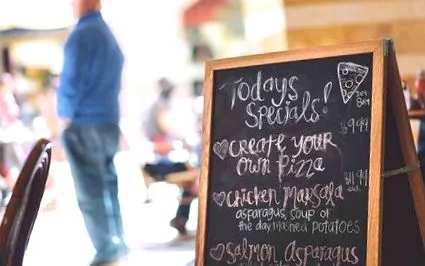 Today's
Specials!
$9.99
Create Your
Own Pizza
Chicken Marsala
asparagus soup of
the day/mashed potatoes
Salmon Asparagus